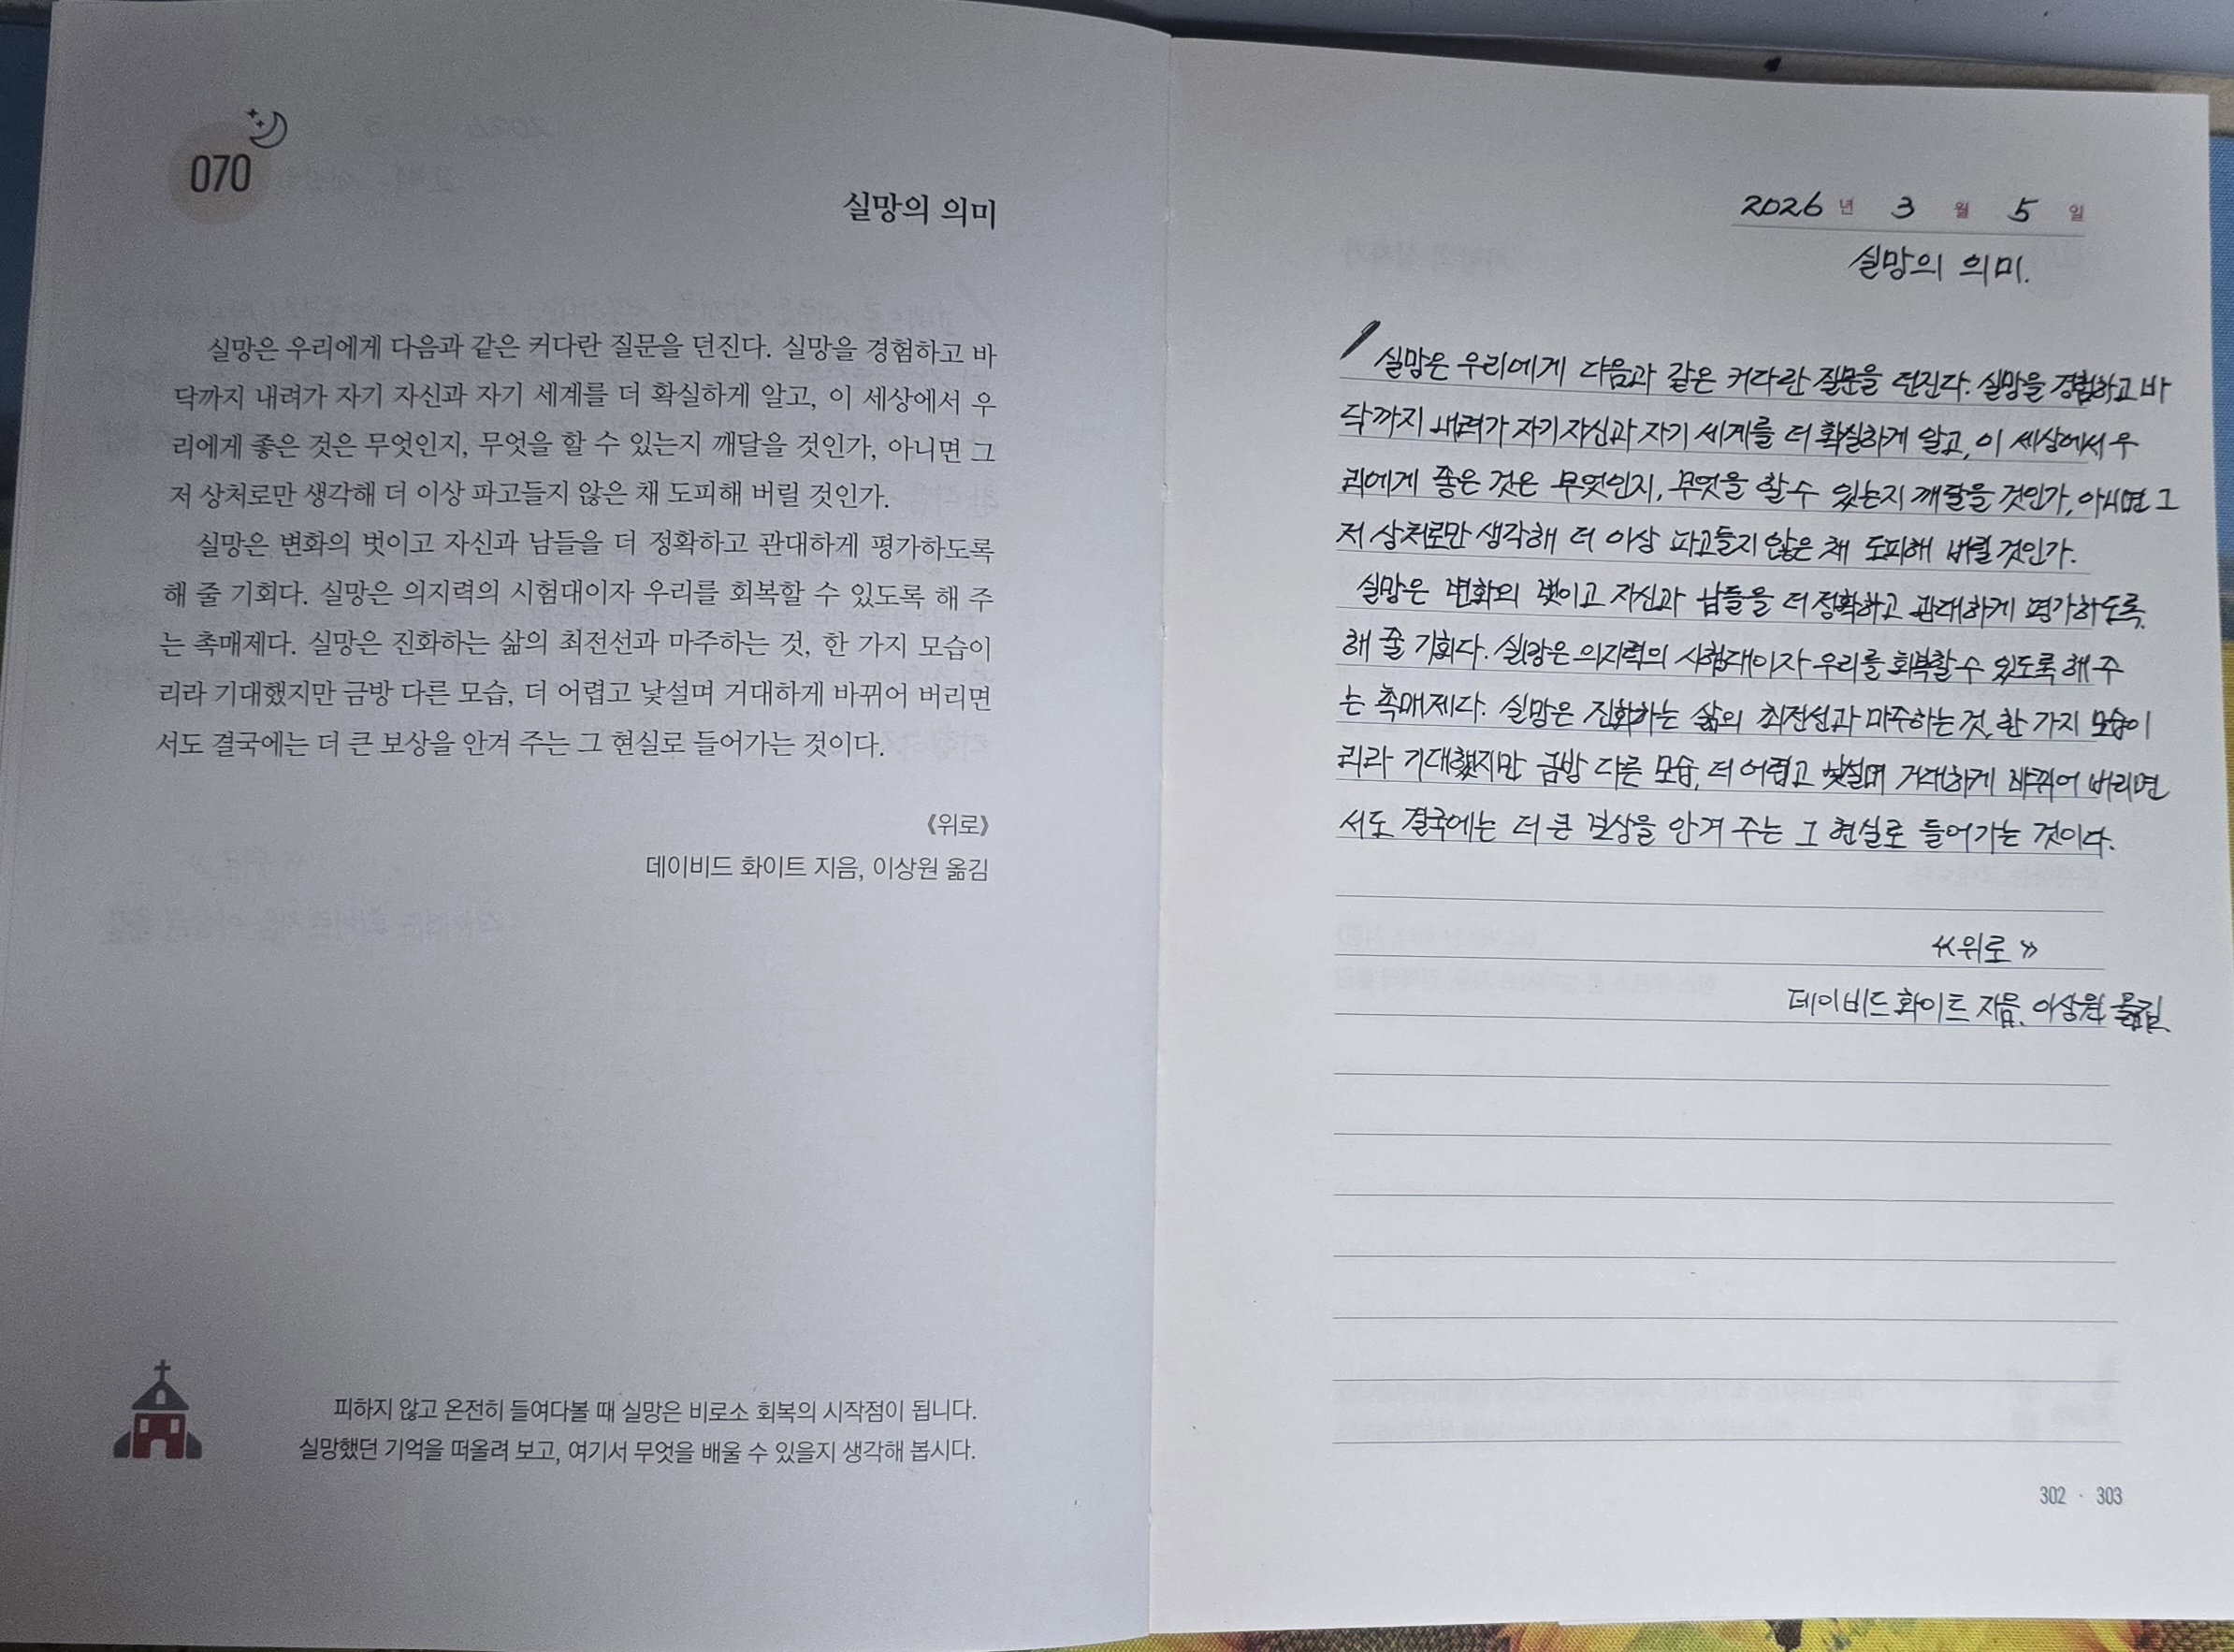 070
실망의 의미
실망은 우리에게 다음과 같은 커다란 질문을 던진다. 실망을 경험하고 바
닥까지 내려가 자기 자신과 자기 세계를 더 확실하게 알고, 이 세상에서 우
리에게 좋은 것은 무엇인지, 무엇을 할 수 있는지 깨달을 것인가, 아니면 그
저 상처로만 생각해 더 이상 파고들지 않은 채 도피해 버릴 것인가.
실망은 변화의 벗이고 자신과 남들을 더 정확하고 관대하게 평가하도록
해 줄 기회다. 실망은 의지력의 시험대이자 우리를 회복할 수 있도록 해 주
는 촉매제다. 실망은 진화하는 삶의 최전선과 마주하는 것, 한 가지 모습이
리라 기대했지만 금방 다른 모습, 더 어렵고 낯설며 거대하게 바뀌어 버리면
서도 결국에는 더 큰 보상을 안겨 주는 그 현실로 들어가는 것이다.
《위로》
데이비드 화이트 지음, 이상원 옮김
피하지 않고 온전히 들여다볼 때 실망은 비로소 회복의 시작점이 됩니다.
실망했던 기억을 떠올려 보고, 여기서 무엇을 배울 수 있을지 생각해 봅시다.
2026년 3월 5일
실망의 의미.
실망은 우리에게 다음과 같은 커다란 질문을 던진다. 실망을 경험하고 바
닥까지 내려가 자기 자신과 자기 세계를 더 확실하게 알고, 이 세상에서 우
리에게 좋은 것은 무엇인지, 무엇을 할 수 있는지 깨달을 것인가, 아니면 그
저 상처로만 생각해 더 이상 파고들지 않은 채 도피해 버릴 것인가.
실망은 변화의 벗이고 자신과 남들을 더 정확하고 관대하게 평가하도록
해 줄 기회다. 실망은 의지력의 시험대이자 우리를 회복할 수 있도록 해 주
는 촉매제다. 실망은 진화하는 삶의 최전선과 마주하는 것, 한 가지 모습이
리라 기대했지만 금방 다른 모습, 더 어렵고 낯설며 거대하게 바뀌어 버리면
서도 결국에는 더 큰 보상을 안겨 주는 그 현실로 들어가는 것이다.
《위로》
데이비드 화이트 지음, 이상원 옮김.
302 · 303